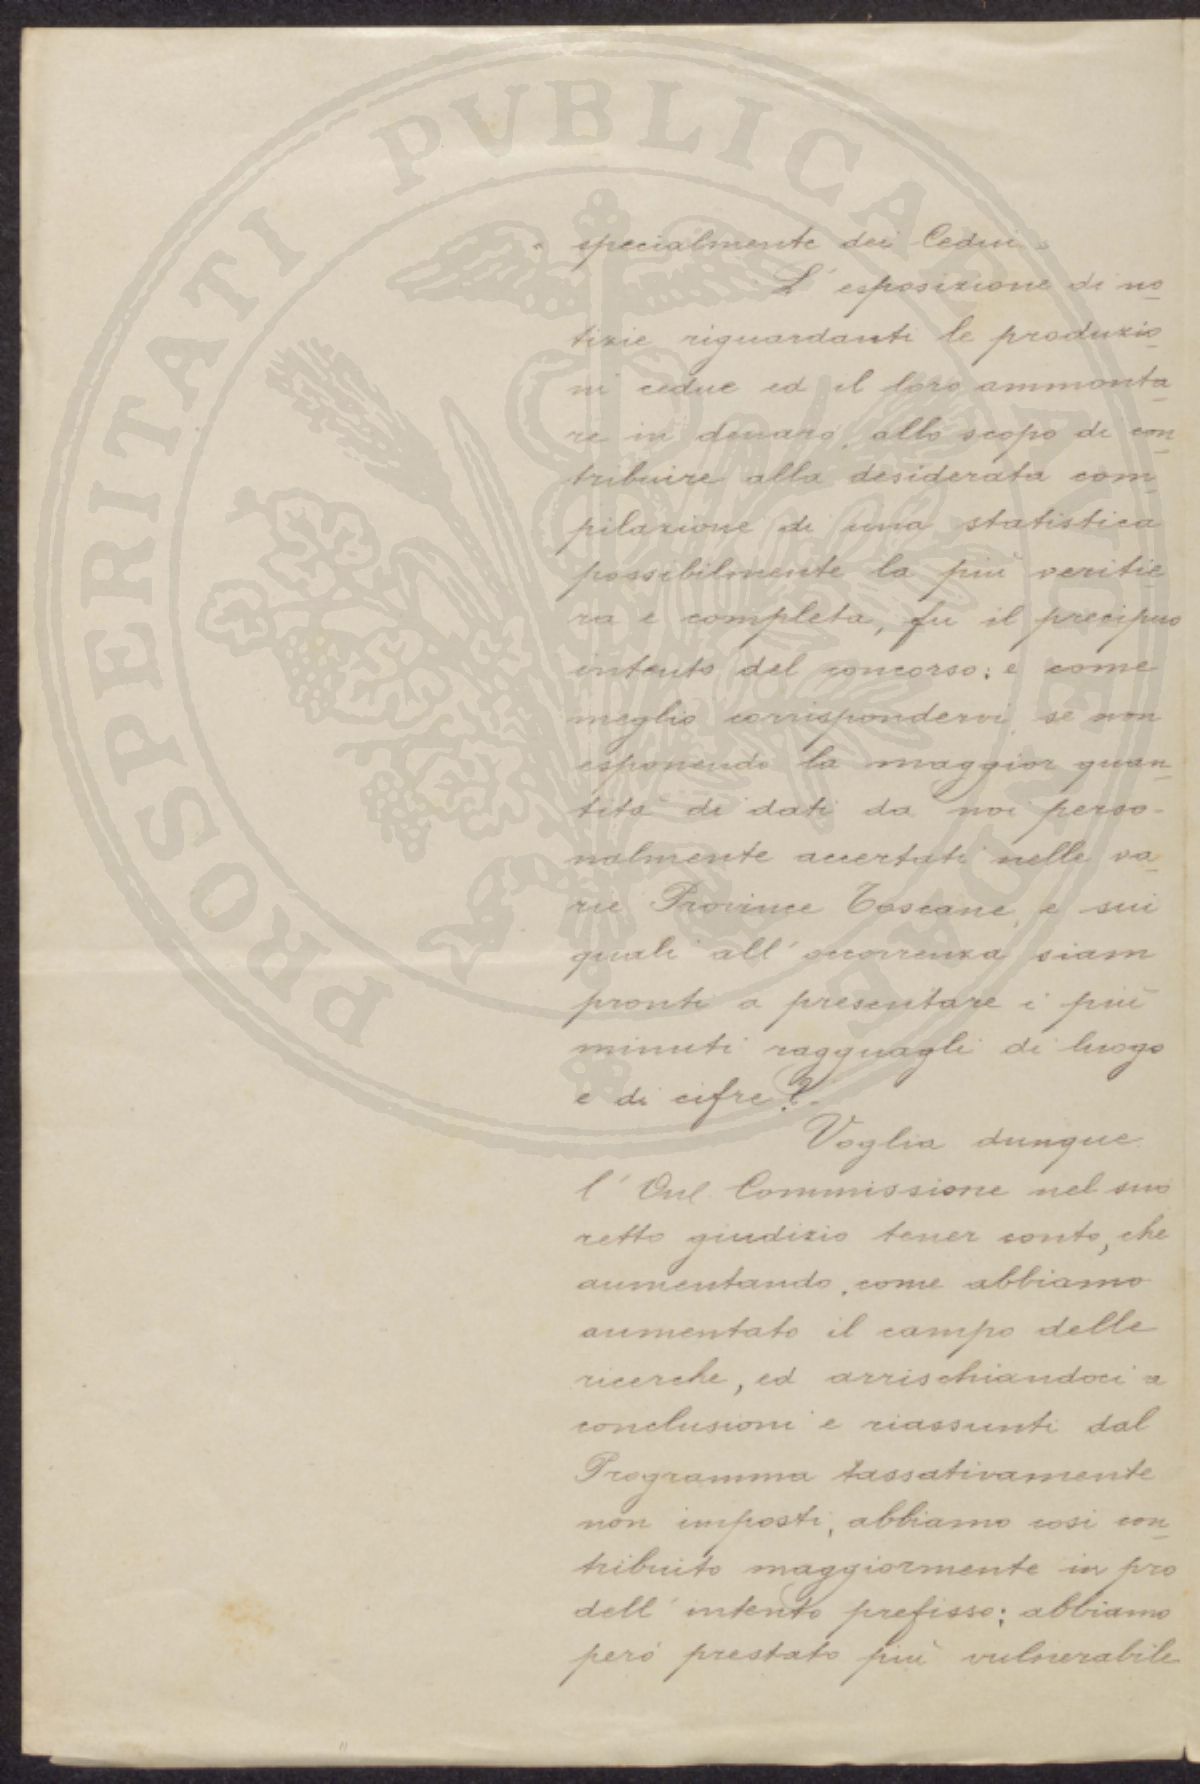 PROSPERITATI PVBLICAE AVGENDAE
« specialmente dei Cedui. »
L' esposizione di no-
tizie riguardanti le produzio-
ni cedue ed il loro ammonta-
re in denaro, allo scopo di con-
tribuire alla desiderata com-
pilazione di una statistica
possibilmente la più veritie-
ra e completa, fu il precipuo
intento del concorso: e come
meglio corrispondervi se non
esponendo la maggior quan-
tità di dati da noi perso-
nalmente accertati nelle va-
rie Province Toscane, e sui
quali all' occorrenza siam
pronti a presentare i più
minuti ragguagli di luogo
e di cifre?
Voglia dunque
l' Onl Commissione nel suo
retto giudizio tener conto, che
aumentando, come abbiamo
aumentato il campo delle
ricerche, ed arrischiandoci a
conclusioni e riassunti dal
Programma tassativamente
non imposti, abbiamo così con-
tribuito maggiormente in pro
dell' intento prefisso: abbiamo
però prestato più vulnerabile